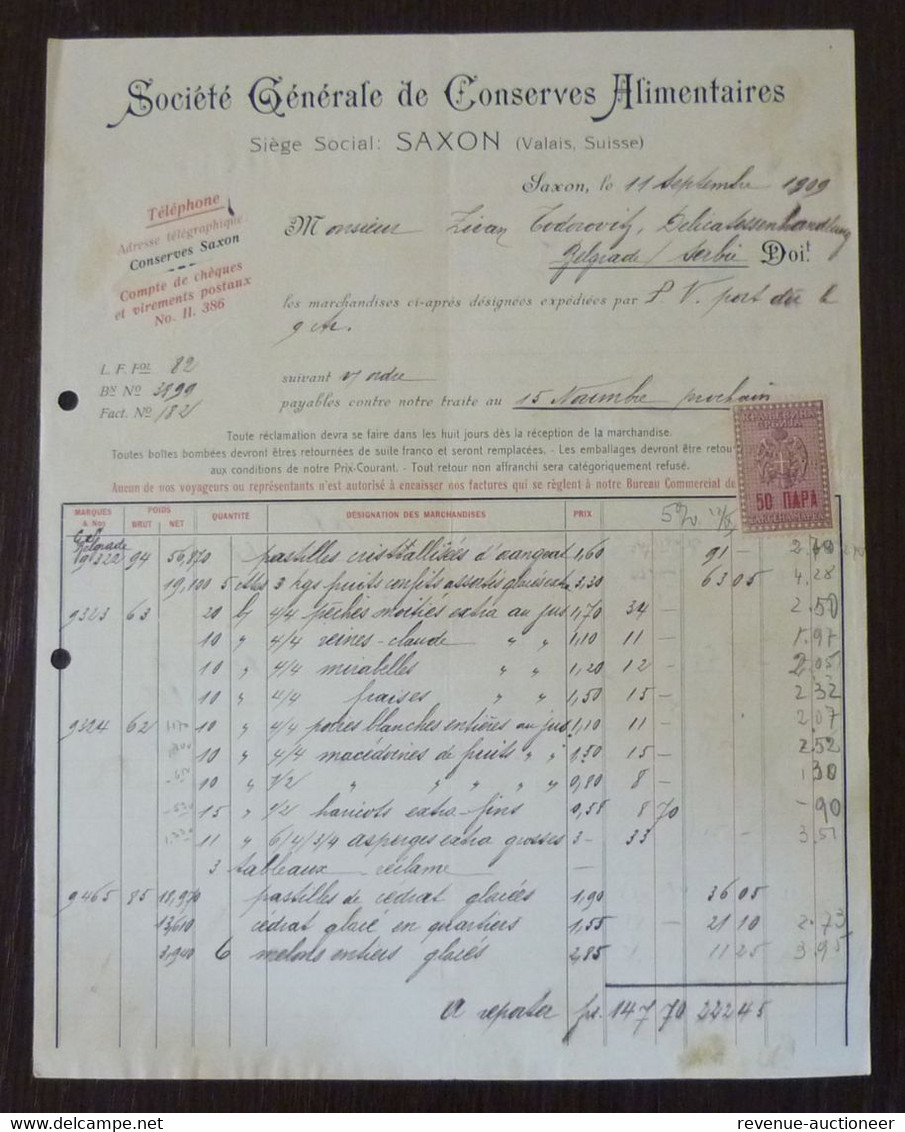 Société Générale de Conserves Alimentaires
Siège Social: SAXON (Valais, Suisse)
Saxon, le 11 Septembre 1909
Téléphone
Adresse télégraphique:
Conserves Saxon
Compte de chèques
et virements postaux
No. II. 386
Monsieur Zivan Todorovitz, Delicatessenhandlung
Belgrade / Serbie Doit
les marchandises ci-après désignées expédiées par P. V. port dû le
9 ct.
L. F. Fol 82
Bn No 3899
Fact. No 182
suivant v/ ordre
payables contre notre traite au 15 Novembre prochain
КРАЉЕВИНА
СРБИЈА
50 ПАРА
ТАКСЕНА МАРКА
Toute réclamation devra se faire dans les huit jours dès la réception de la marchandise.
Toutes boîtes bombées devront être retournées de suite franco et seront remplacées. - Les emballages devront être retou
aux conditions de notre Prix-Courant. - Tout retour non affranchi sera catégoriquement refusé.
Aucun de nos voyageurs ou représentants n'est autorisé à encaisser nos factures qui se règlent à notre Bureau Commercial de
MARQUES & Nos POIDS BRUT NET QUANTITÉ DÉSIGNATION DES MARCHANDISES PRIX 5%
Belgrade
9322 94 56,870 pastilles cristallisées d'orangeat 1,60 91 -
19,100 5 3 kgs fruits confits assortis glacés extra 3,30 63 05 4.28
9323 63 20 b/ 4/4 pêches moitiés extra au jus 1,70 34 - 2.50
10 " 4/4 reines-claude " " 1,10 11 - 1.97
10 " 4/4 mirabelles " " 1,20 12 - 2.05
10 " 4/4 fraises " " 1,50 15 - 2.32
9324 62 10 " 4/4 poires blanches entières au jus 1,10 11 - 2.07
10 " 4/4 macédoines de fruits " " 1,50 15 - 2.52
10 " 1/2 " " " " " 0,80 8 - 1.30
15 " 1/2 haricots extra-fins 0,58 8 70 - 90
11 " 6/4/3/4 asperges extra grosses 3- 33 3.51
3 tableaux réclame -
9465 85 18,970 pastilles de cédrat glacés 1,90 36 05
13,610 cédrat glacé en quartiers 1,55 21 10 2.73
3,940 6 melons entiers glacés 2,85 11 25 3.95
A reporter fr. 147 70 222 45
revenue-auctioneer